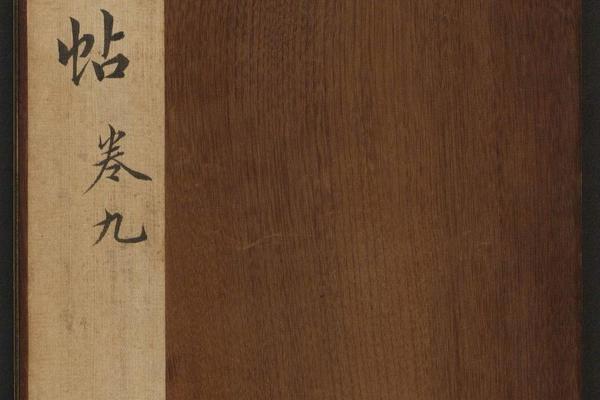 帖
卷九